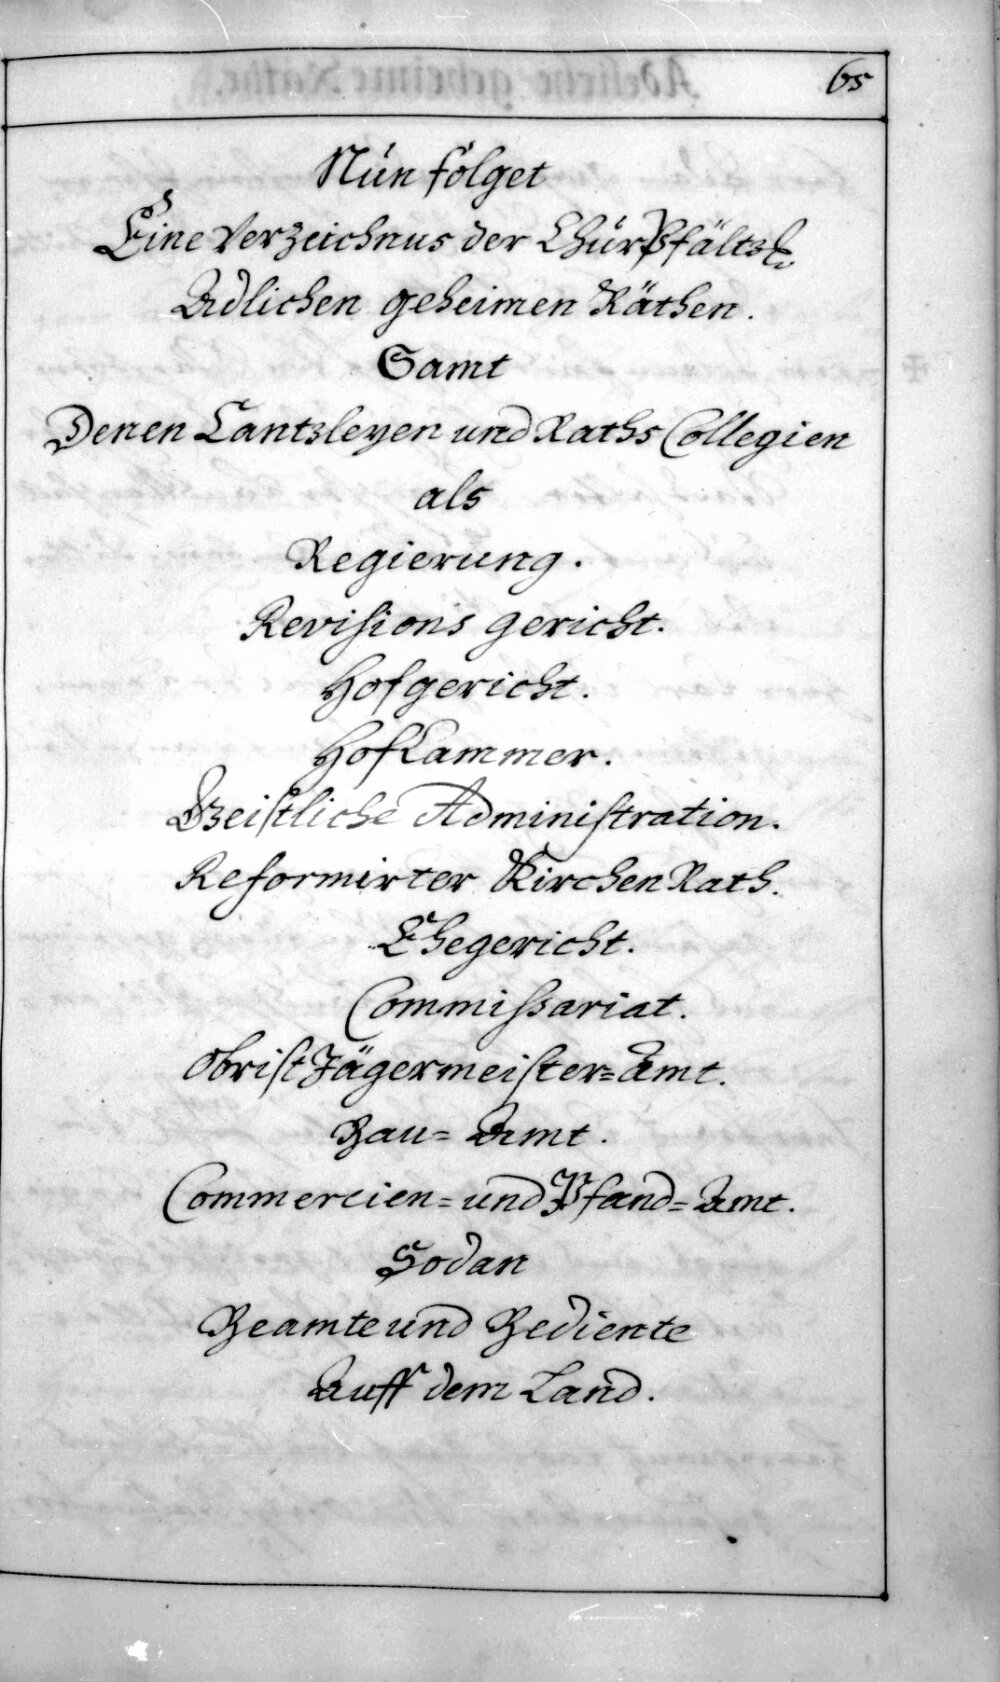 65
Nun folget
Eine Verzeichnus der ChurPfältzl.
Adlichen geheimen Räthen.
Samt
Denen Cantzleyen und Raths Collegien
als
Regierung.
Revisions gericht.
Hofgericht.
HofCammer.
Geistliche Administration.
Reformirter Kirchen Rath.
Ehegericht.
Commissariat.
Obrist Jägermeister=Amt.
Bau=Amt.
Commercien=und Pfand=Amt.
Sodan
Beamte und Bediente
Auff dem Land.